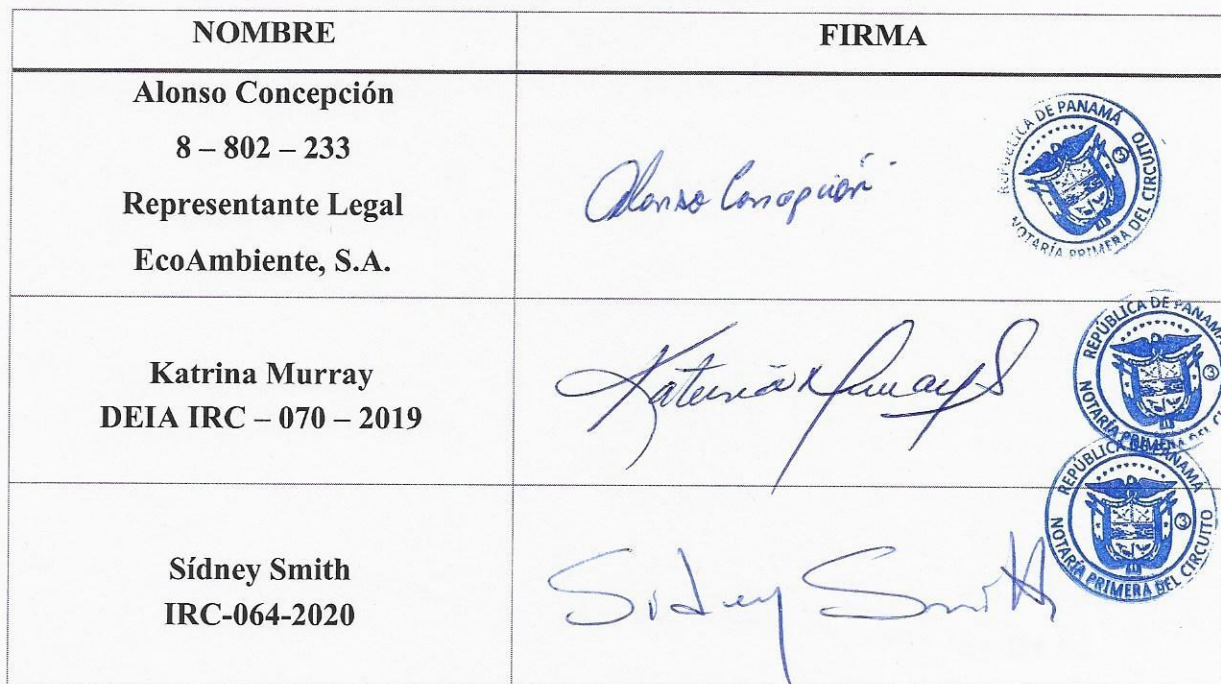 NOMBRE
FIRMA
Alonso Concepción
8 – 802 – 233
Representante Legal
EcoAmbiente, S.A.
Alonso Concepción
REPÚBLICA DE PANAMÁ
NOTARÍA PRIMERA DEL CIRCUITO
3
Katrina Murray
DEIA IRC – 070 – 2019
Katrina Murray S
REPÚBLICA DE PANAMÁ
NOTARÍA PRIMERA DEL
3
Sídney Smith
IRC-064-2020
Sidney Smith
REPÚBLICA DE PANAMÁ
NOTARÍA PRIMERA DEL CIRCUITO
3